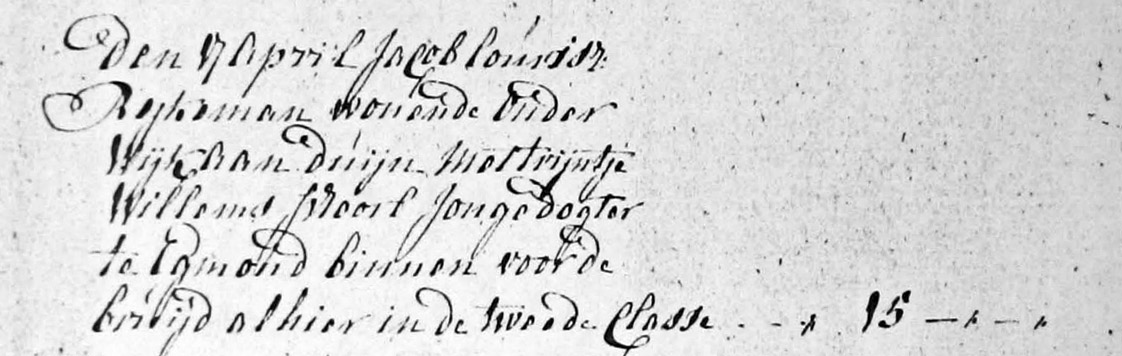 Den 17 April Jacob Lourisz
Rijkeman wonende Onder
Wijk aan Duijn Met Trijntje
Willems Jonge dogter
te Egmond binnen voor de
bruijd alhier in de tweede Classe - - " 15 — " — "